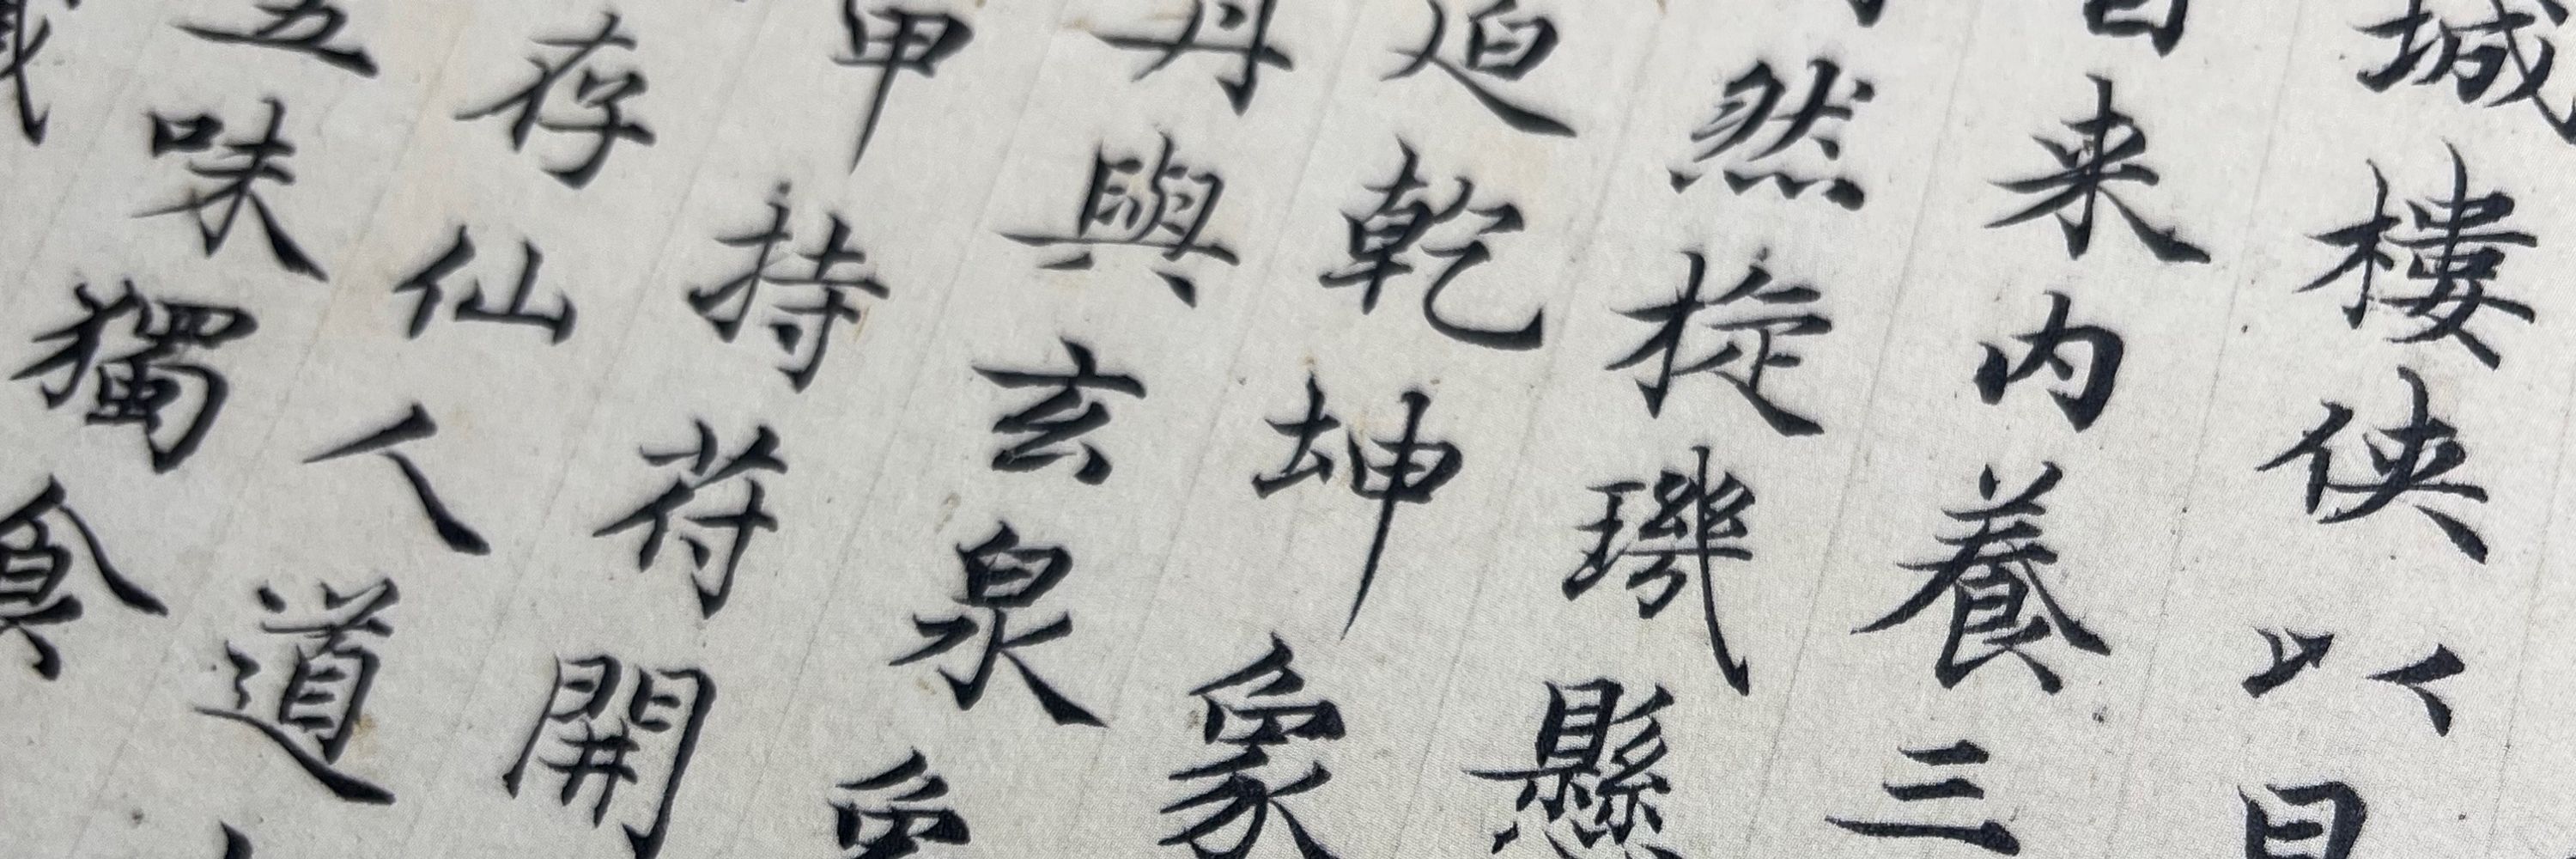 城樓俠以日
来内養三
然旋璣懸
迫乾坤象
丹與玄泉
甲持符開
存仙人道
五味獨食